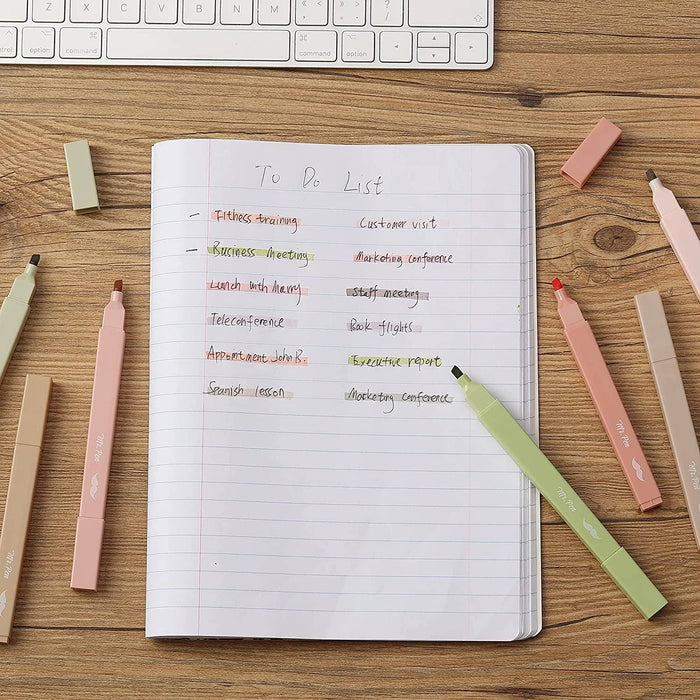 Z X C V B N M < > ?
control option command command option
To Do List
- Fitness training Customer visit
- Business Meeting Marketing conference
Lunch with marry Staff meeting
Teleconference Book flights
Appointment John R. Executive report
Spanish lesson Marketing conference
Mr. Pen
Mr. Pen
Mr. Pen
Mr. Pen
Mr. Pen